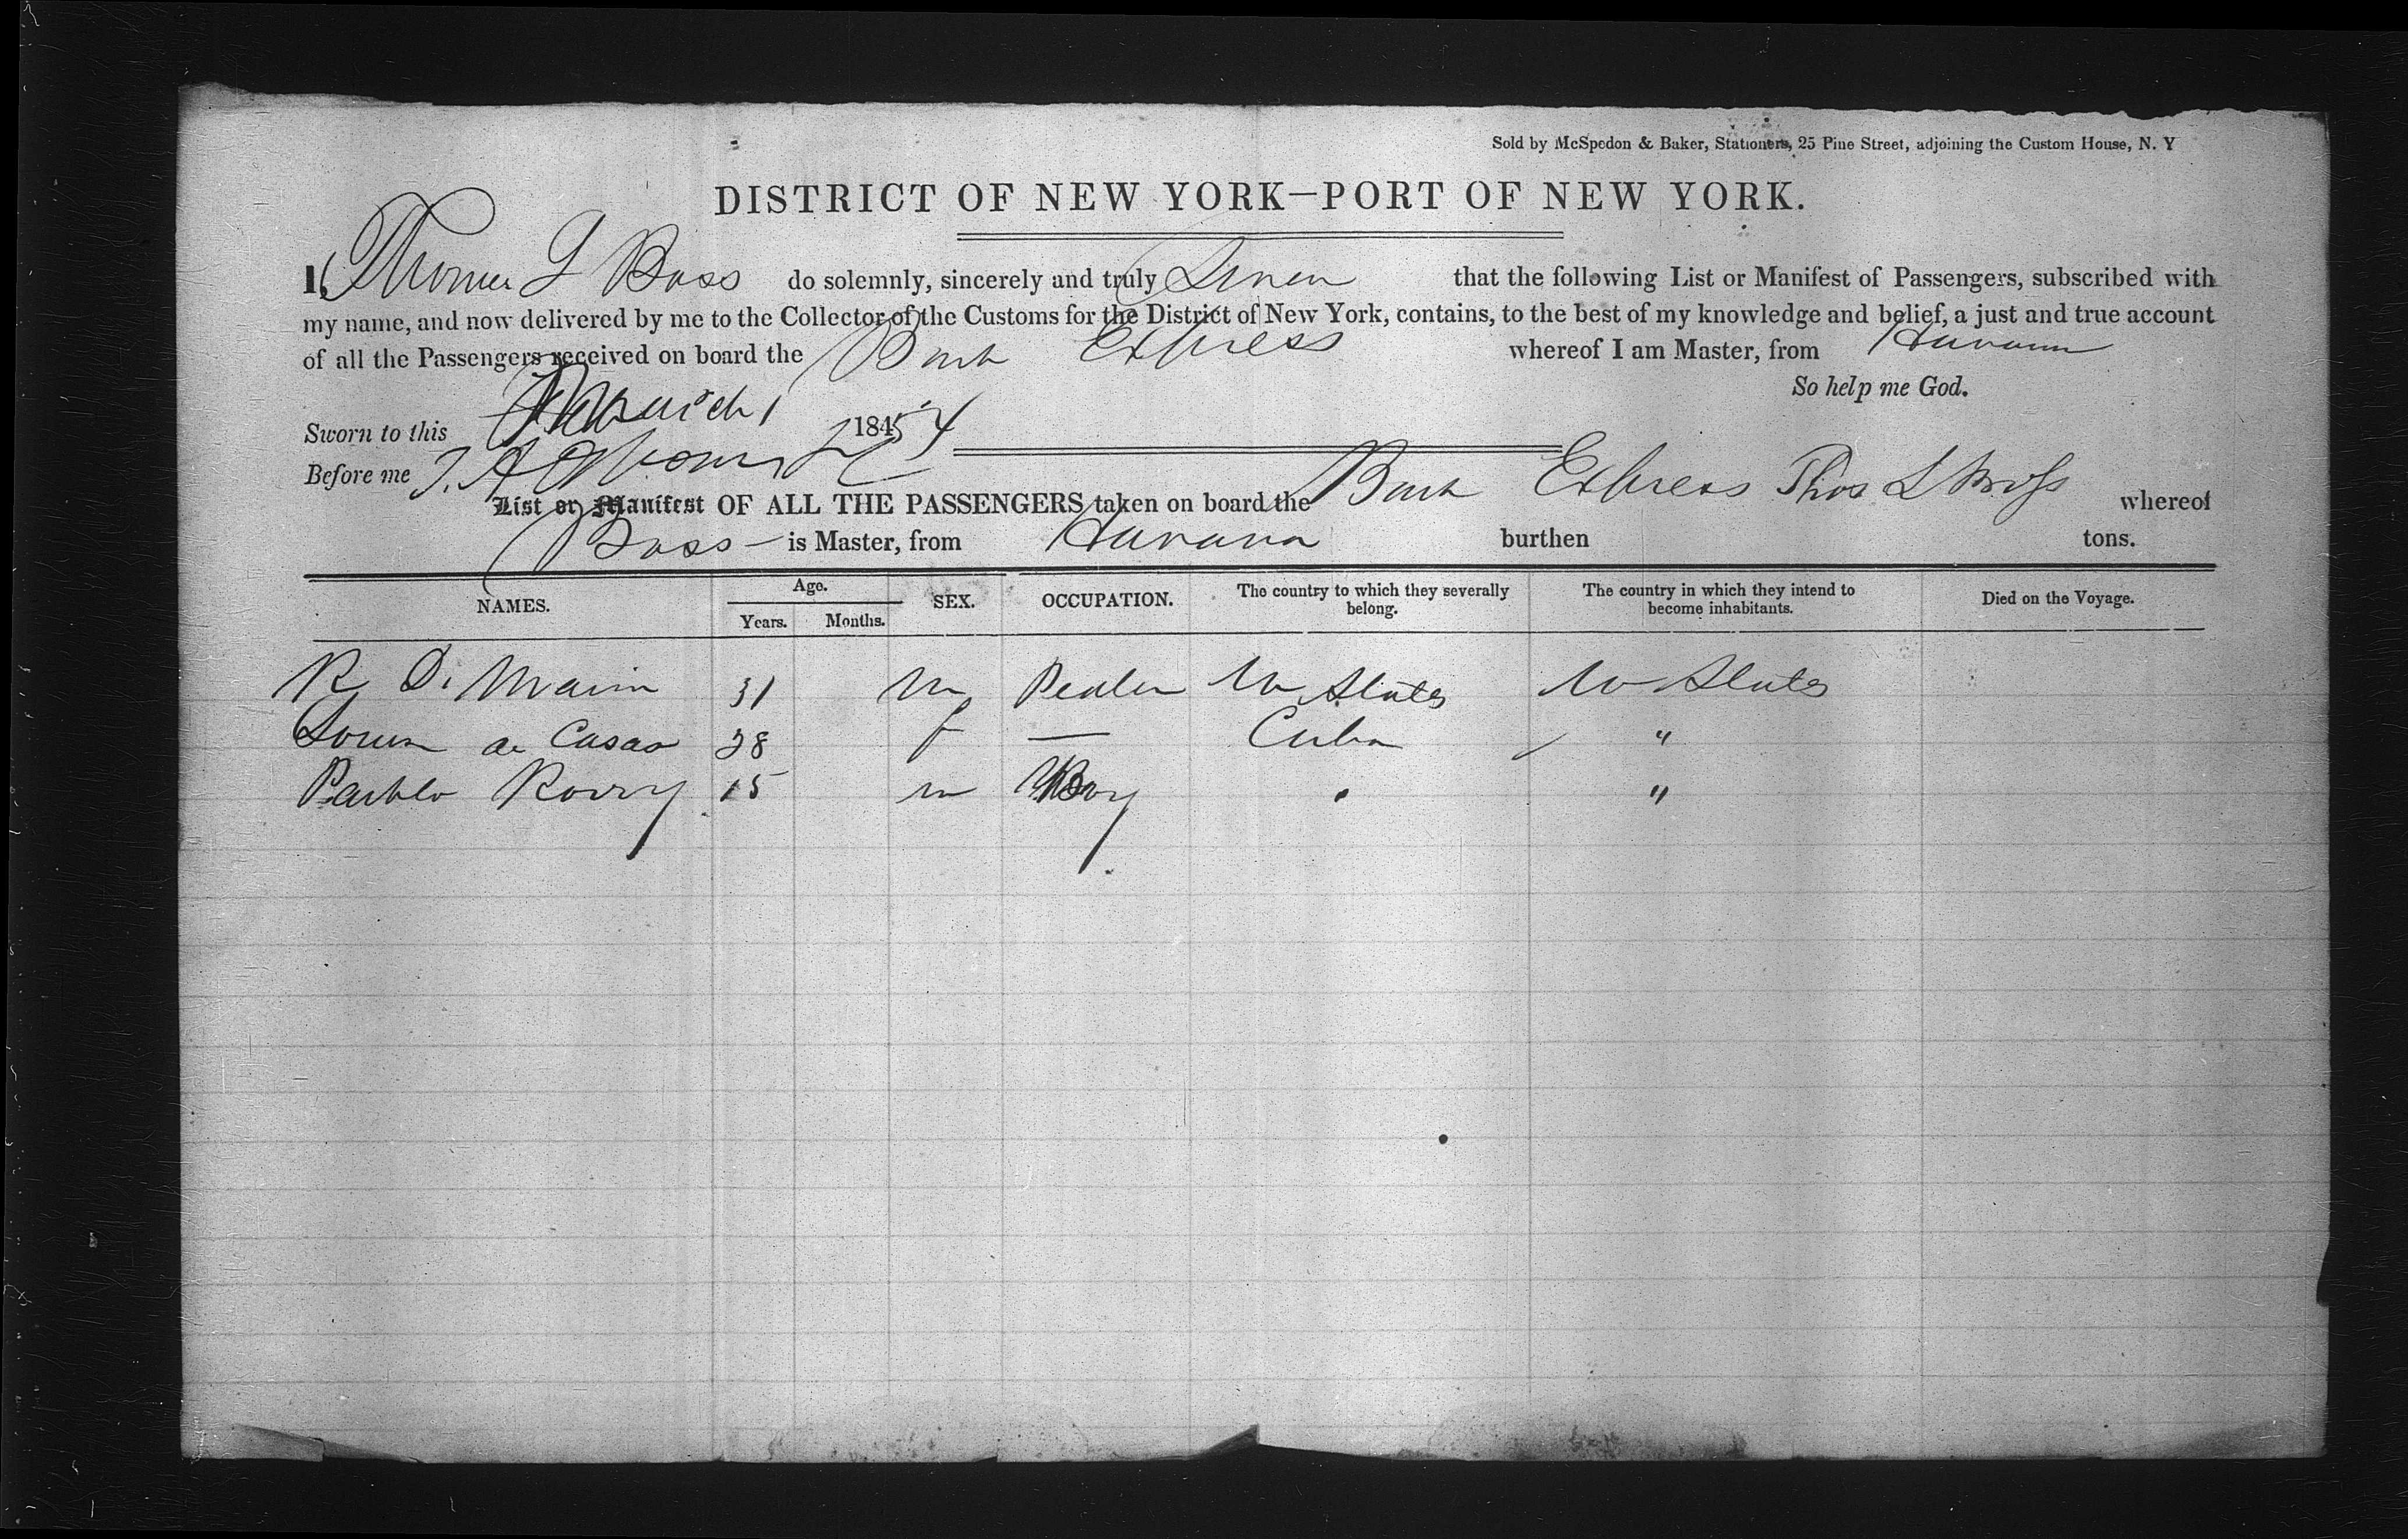 Sold by McSpedon & Baker, Stationers, 25 Pine Street, adjoining the Custom House, N. Y
DISTRICT OF NEW YORK—PORT OF NEW YORK.
I, Thomas L Bass do solemnly, sincerely and truly Swear that the following List or Manifest of Passengers, subscribed with
my name, and now delivered by me to the Collector of the Customs for the District of New York, contains, to the best of my knowledge and belief, a just and true account
of all the Passengers received on board the Bark Express whereof I am Master, from Havana
So help me God.
Sworn to this March 1 1854
Before me
List or Manifest OF ALL THE PASSENGERS taken on board the Bark Express Thos L whereof
Bass is Master, from Havana burthen tons.
NAMES. Age. Years. Months. SEX. OCCUPATION. The country to which they severally belong. The country in which they intend to become inhabitants. Died on the Voyage.
R D. 31 m U States U States
de Casas 28 f — Cuba "
Pablo 15 m Boy " "